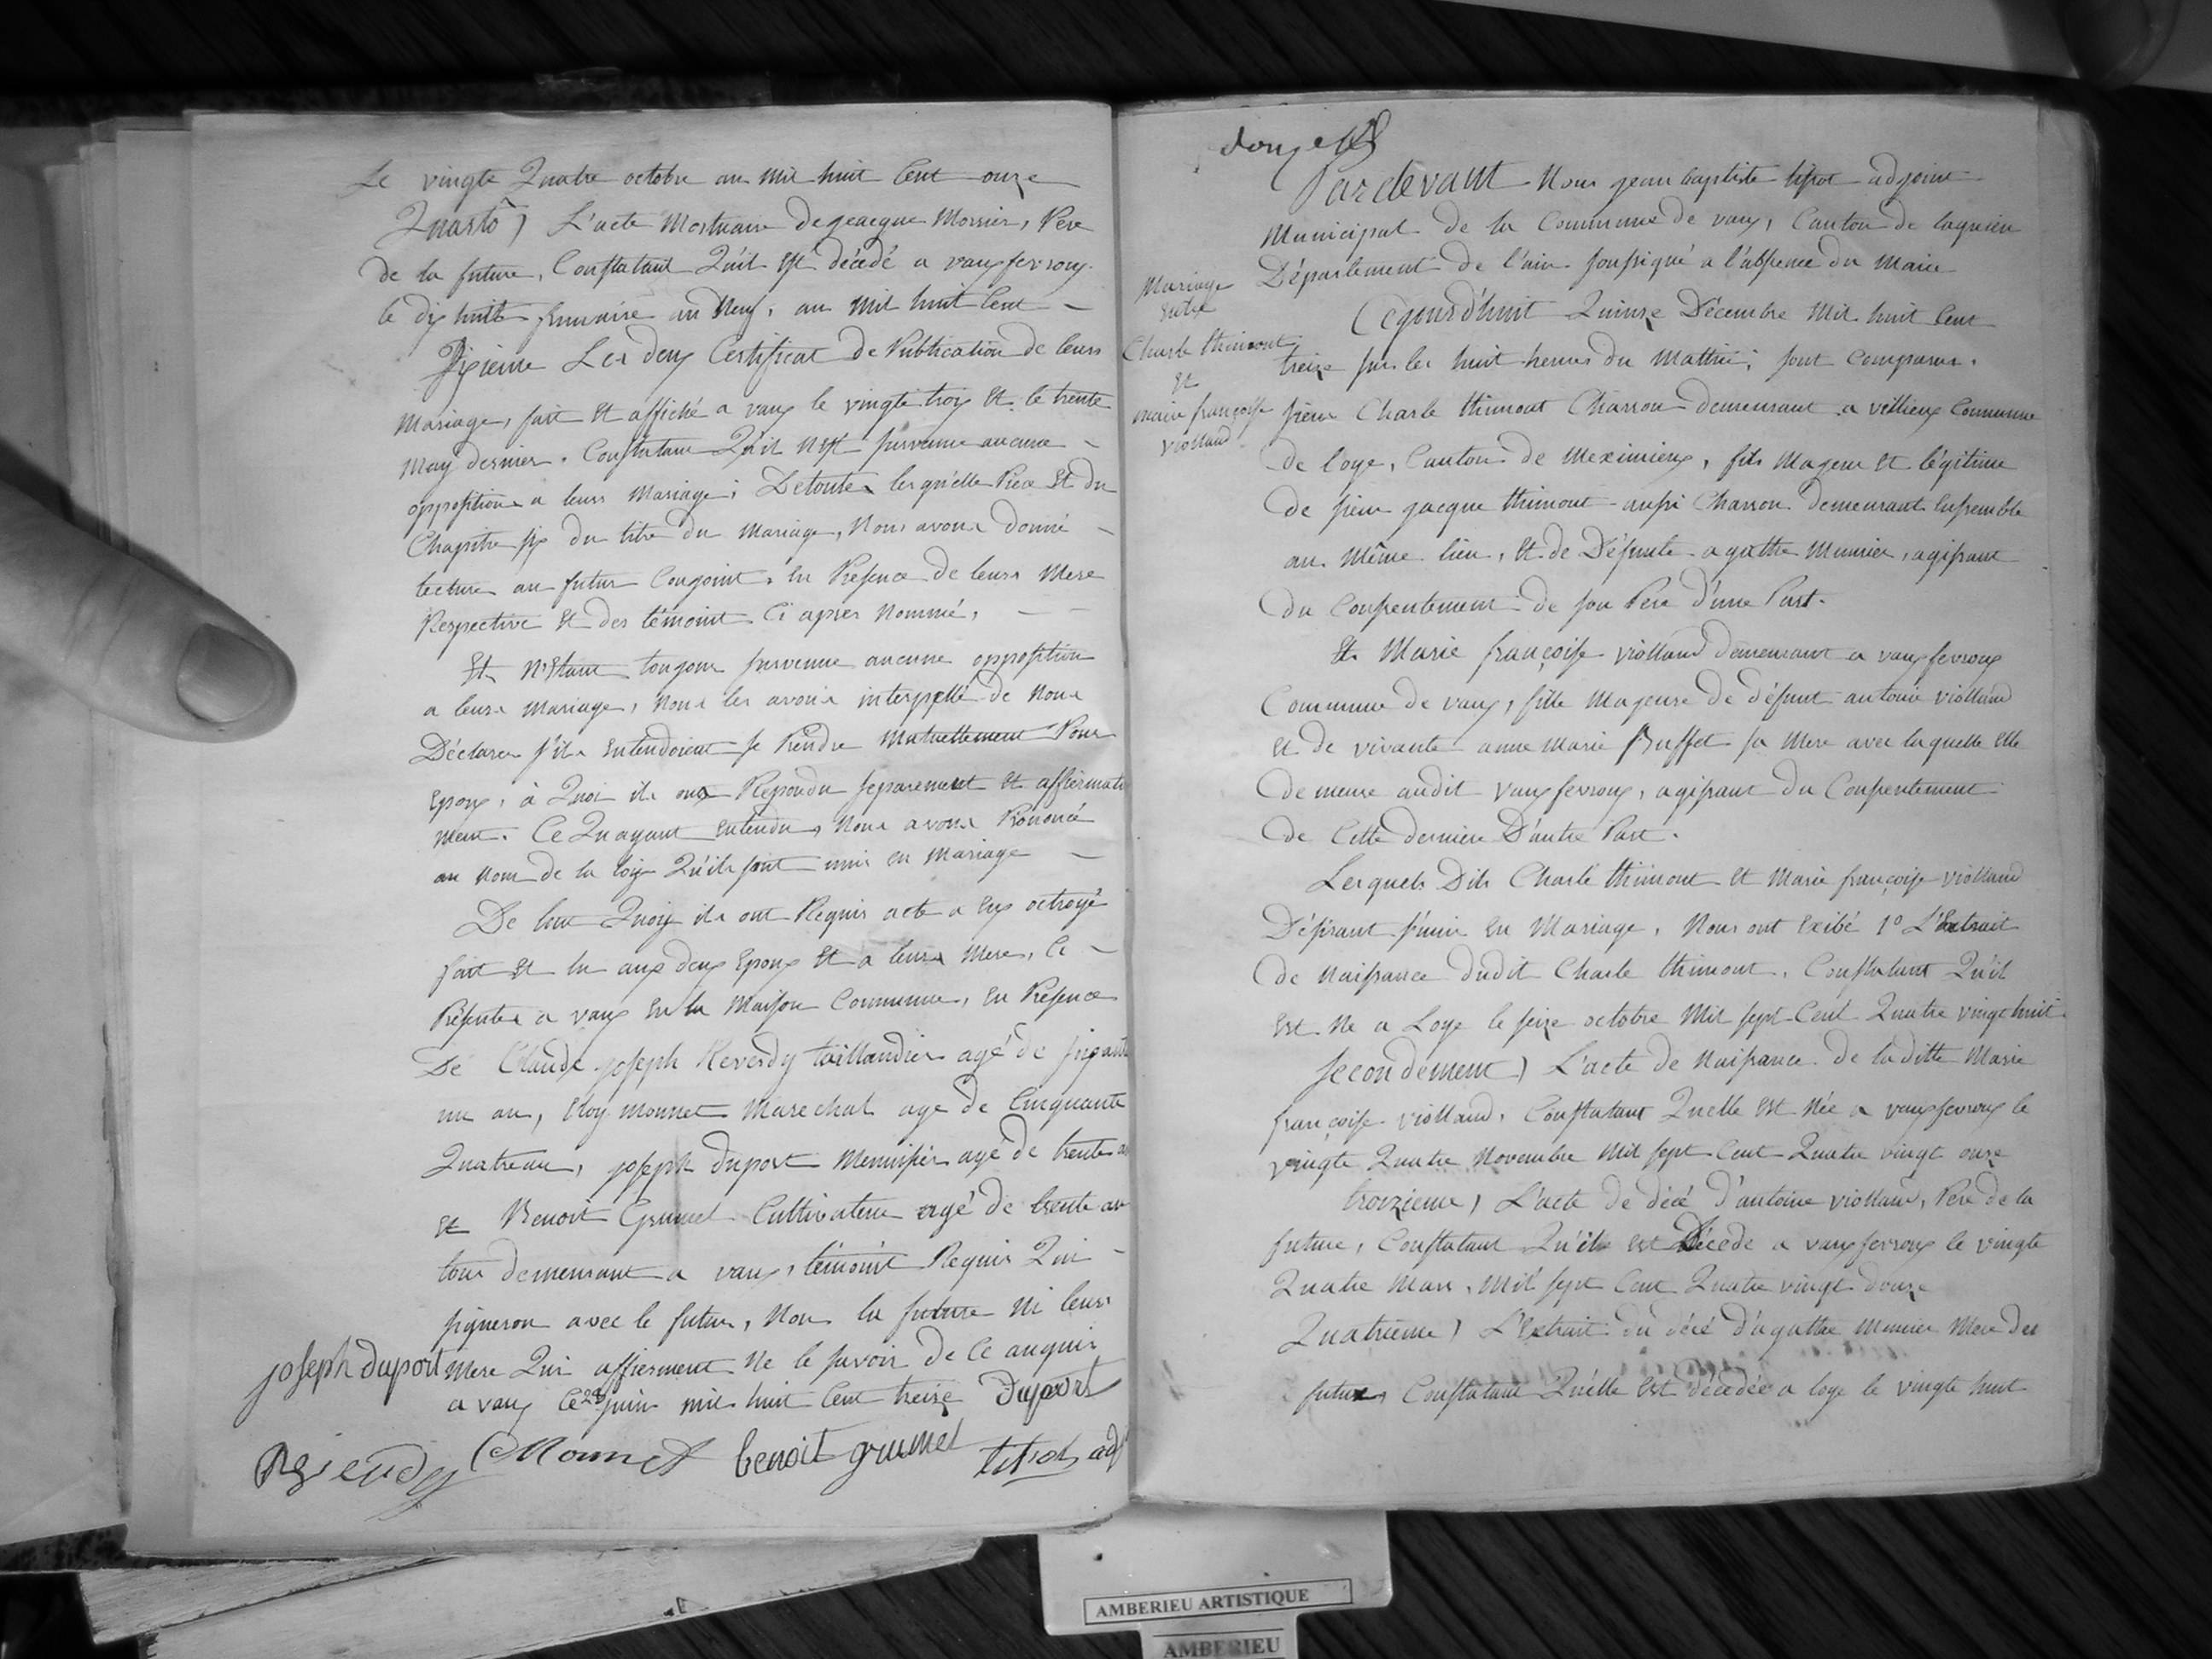 Le vingte Quatre octobre an mil huit Cent onze
Quarto) L'acte Mortuaire de jeacque Mornier, Pere
de la future, Constatant Qu'il Est décédé a vaux fevroux
le dix huit frimaire an Neuf, an mil huit Cent
Sixieme Les deux Certificat de Publication de leurs
Mariage, fait Et affiché a vaux le vingte troix Et le trente
May dernier. Constatant Qu'il n'est survenue aucune
opposition a leurs Mariage; De toutes lesquelle Piece Et du
Chapitre six du titre du Mariage, Nous avons donné
lecture au futur Conjoint, En Presence de leurs Mere
Respective Et des témoint Ci apres Nommé,
Et N'Etant toujour survenue aucune opposition
a leurs Mariage, Nous les avons interpellé de Nous
Déclarer s'ils Entendoient se Prendre Mutuellement Pour
Epoux, à Quoi ils ont Repondu separement Et affiermati
ment. Ce Quayant Entendu, Nous avons Prononcé
au Nom de la loix Qu'ils sont unis en Mariage
De tout Quoix ils ont Requis acte a Eux octroyé
fait Et lu aux deux Epoux Et a leurs Mere, Ce
Présente a vaux En la Maison Commune, En Presence
De Claude joseph Reverdy taillandier agé de soixante
un an, Eloy Monnet Marechal agé de Cinquante
Quatre an, joseph Duport Menuisier agé de trente an
Et Benoit Grumel Cultivateur agé de trente an
tous demeurant a vaux, témoint Requis Qui
signeron avec le futur, Non la future Ni leurs
Mere Qui affierment Ne le savoir de Ce anquis
a vaux Ce 28 juin mil huit Cent treize Duport
joseph duport
Reverdy Monnet benoit grumel tipot adj
douze
Pardevant Nous jean baptiste tipot adjoint
Municipal de la Commune de vaux, Canton de lagnieu
Département de l'ain soussigné a l'absence du Maire
Mariage
Entre
Charle thimont
Et
marie françoise
violland
Cejourd'huit Quinze Décembre Mil huit Cent
treize sur les huit heures du Mattin; sont Comparus.
pierre Charle thimont Charron demeurant a villieux Commune
de loye, Canton de Meximieux, fils Majeur Et légitime
de pierre jacque thimont aussi Charron demeurant Ensemble
au Même lieu, Et de Défunte agathe Munier, agissant
du Consentement de son Pere d'une Part.
Et Marie françoise violland demeurant a vaux fevroux
Commune de vaux, fille Majeure de défunt antoine violland
Et de vivante anne marie Buffet sa Mere avec laquelle Elle
demeure audit vaux fevroux, agissant du Consentement
de Cette derniere D'autre Part.
Lesquels Dits Charle thimont Et Marie françoise violland
Désirant s'unir En Mariage, Nous ont Exibé 1º L'Extrait
de Naissance dudit Charle thimont, Constatant Qu'il
Est Ne a Loye le seize octobre Mil sept Cent Quatre vingt huit
Secondement) L'acte de Naissance de la ditte Marie
françoise violland, Constatant Quelle Est Née a vaux fevroux le
vingte Quatre Novembre Mil sept Cent Quatre vingt onze
troizieme) L'acte de décé d'antoine violland, Pere de la
future, Constatant Qu'il Est Décédé a vaux fevroux le vingte
Quatre Mars, Mil sept Cent Quatre vingt douze
Quatrieme) L'Extrait du décé d'agathe Munier Mere du
futur, Constatant Qu'elle Est décédée a loye le vingte huit
AMBERIEU ARTISTIQUE
AMBERIEU